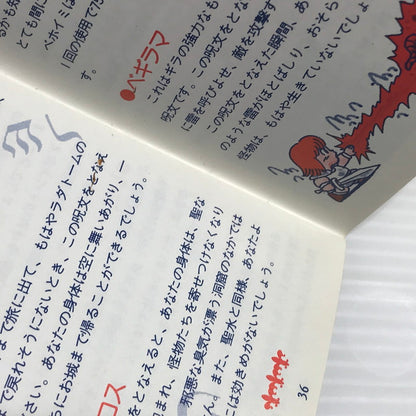 るかも知
ベホイミは
1回の使用で75
す。
●ベギラマ
これはギラの強力なも
呪文です。この呪文をとな
に雷を呼びよせ、敵を攻撃す
この呪文をとなえた瞬間、あ
のような雷がほとばしり、おそら
怪物は もはや生きていないでしょ
まで旅に出て、もはやラダトームの
で戻れそうにないとき、この呪文をとなえ
さい。あなたの身体は空に舞いあがり、一
ちにお城まで帰ることができるでしょう。
ロス
をとなえると、あなたの身体は、聖な
れ、怪物たちを寄せつけなくなり
邪悪な臭気が漂う洞窟のなかでは
ん。また、聖水と同様、あなたよ
は効きめがないでしょう。
36